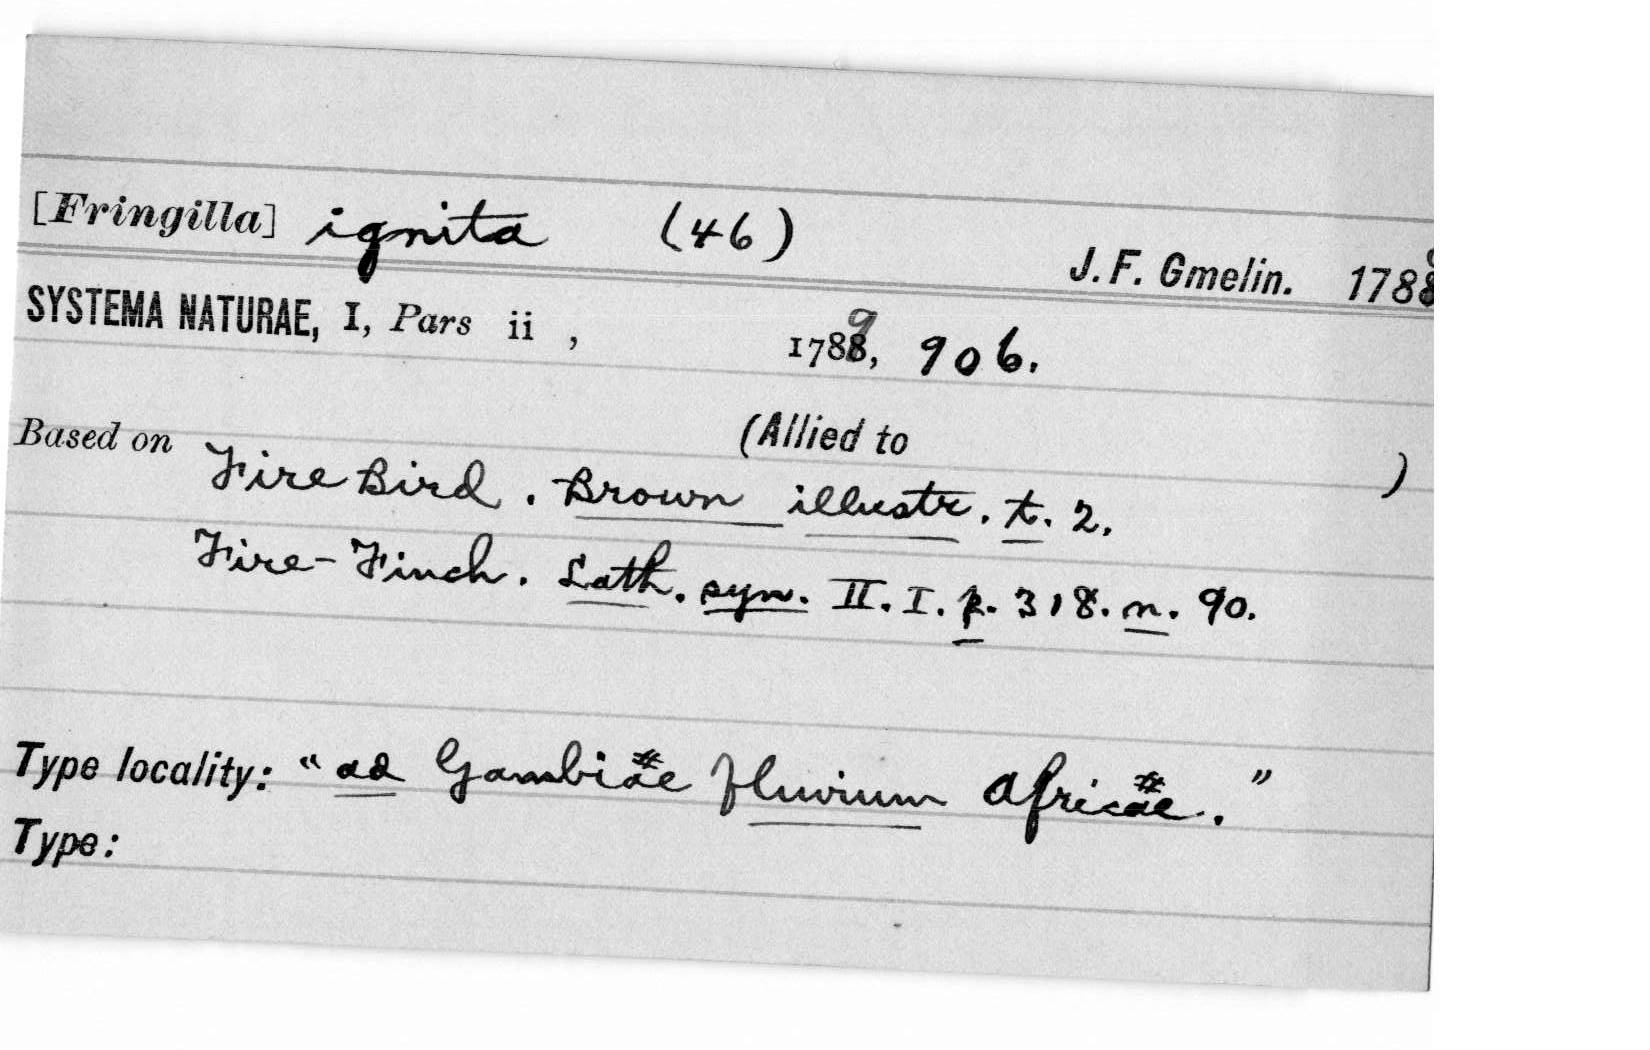 [Fringilla] ignita (46)
J. F. Gmelin. 1788
SYSTEMA NATURAE, I, Pars ii , 1789, 906.
Based on (Allied to )
Fire Bird . Brown illustr. t. 2.
Fire-Finch. Lath. syn. II. I. p. 318. n. 90.
Type locality: "ad Gambiae fluvium Africae."
Type: